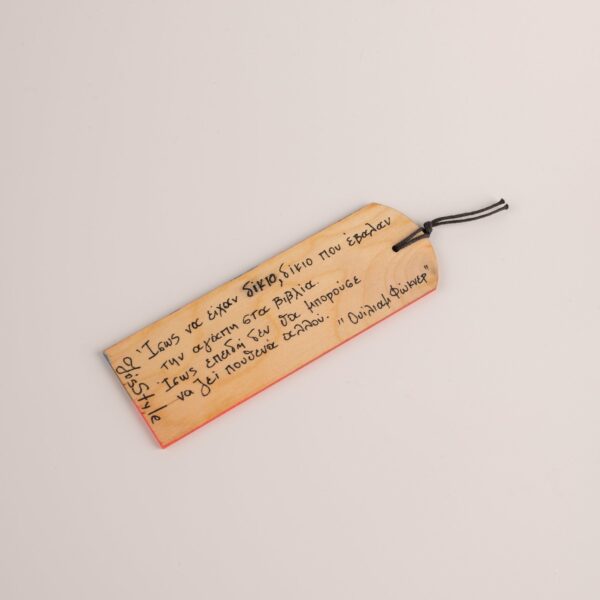 Ίσως να είχαν δίκιο, δίκιο που έβαλαν
την αγάπη στα βιβλία.
Ίσως επειδή δεν θα μπορούσε
να ζεί πουθενά αλλού.
"Ουίλιαμ Φώκνερ"